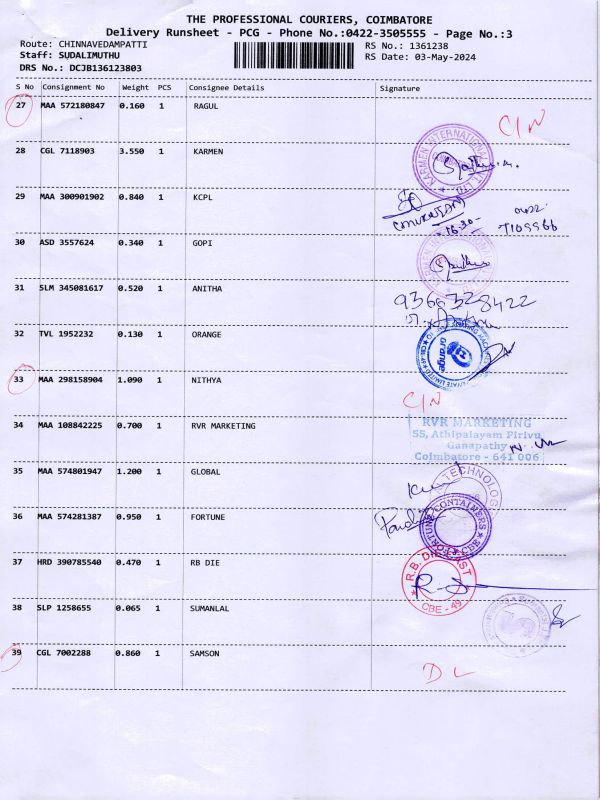 THE PROFESSIONAL COURIERS, COIMBATORE
Delivery Runsheet - PCG - Phone No.:0422-3505555 - Page No.:3
Route: CHINNAVEDAMPATTI RS No.: 1361238
Staff: SUDALIMUTHU RS Date: 03-May-2024
DRS No.: DCJB136123803
S No Consignment No Weight PCS Consignee Details Signature
27 MAA 572180847 0.160 1 RAGUL
C/N
28 CGL 7118903 3.550 1 KARMEN
KARMEN INTERNATIONAL
29 MAA 300901902 0.840 1 KCPL
16.30
0422
7109966
30 ASD 3557624 0.340 1 GOPI
31 SLM 345081617 0.520 1 ANITHA
9366328422
32 TVL 1952232 0.130 1 ORANGE
orange
33 MAA 298158904 1.090 1 NITHYA
C/N
34 MAA 108842225 0.700 1 RVR MARKETING
RVR MARKETING
55, Athipalayam Pirivu
Ganapathy
Coimbatore - 641 006
35 MAA 574801947 1.200 1 GLOBAL
TECHNOLOG
36 MAA 574281387 0.950 1 FORTUNE
FORTUNE CONTAINERS
CBE
37 HRD 390785540 0.470 1 RB DIE
R.B. DIE
CBE - 49
38 SLP 1258655 0.065 1 SUMANLAL
39 CGL 7002288 0.860 1 SAMSON
D L